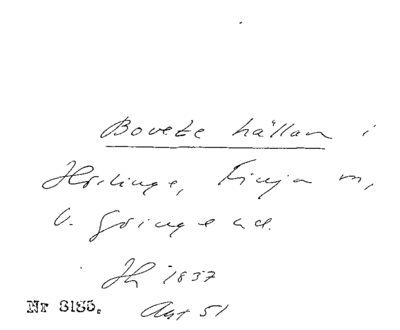 Bovete hällan i
Hörlinge, Finja m,
V. Göinge hd.
Hh 1837
Nr 3185. Akt 51